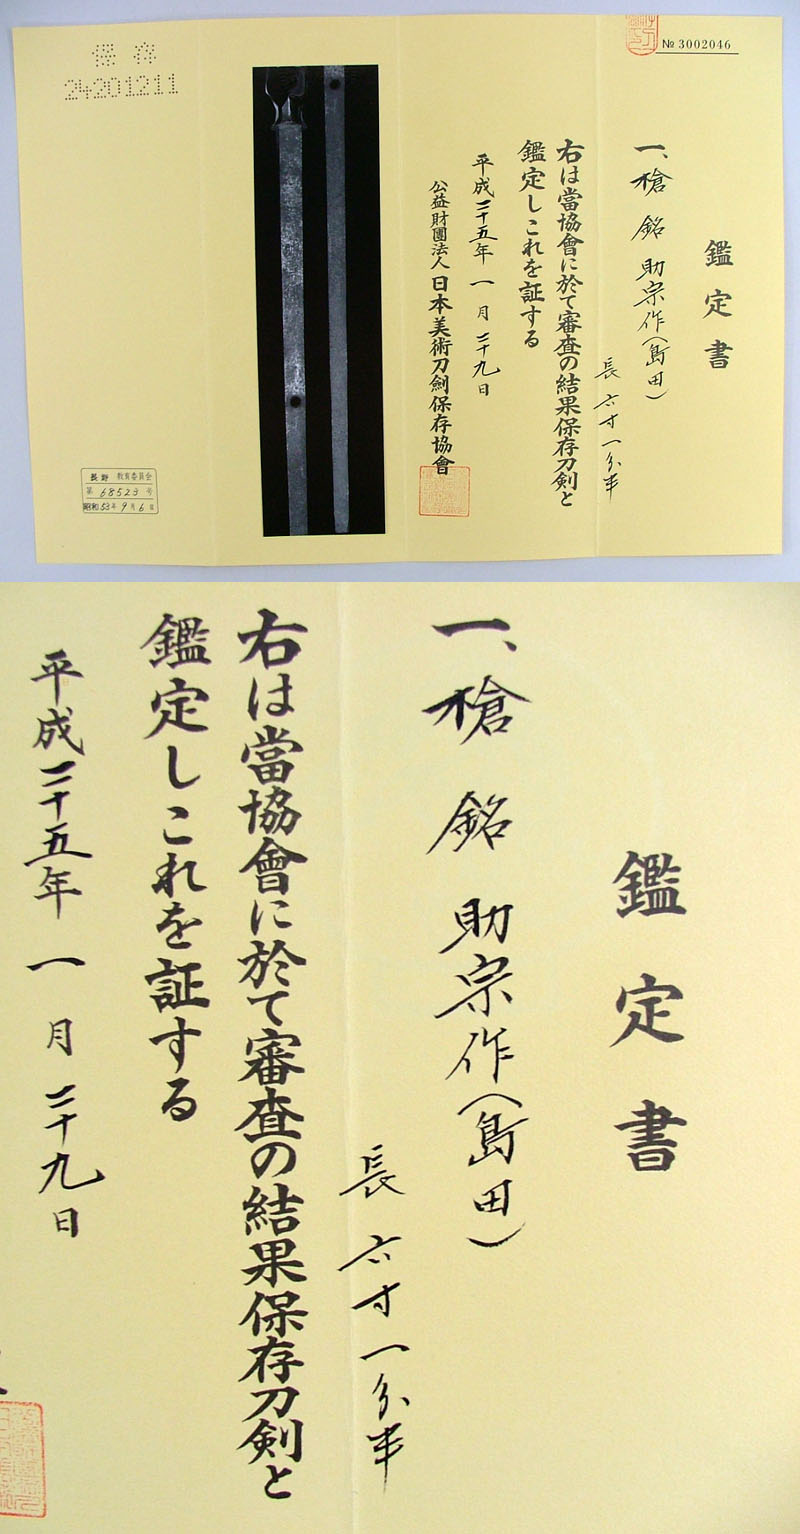 № 3002046
鑑定書
一、槍 銘 助宗作(島田)
長 六寸一分半
右は當協會に於て審査の結果保存刀剣と
鑑定しこれを証する
平成二十五年 一月 二十九日
公益財團法人 日本美術刀劍保存協會
保存
24201211
長野 教育委員会
第 68523 号
昭和 53年 9月 6日
鑑定書
一、槍 銘 助宗作(島田)
長 六寸一分半
右は當協會に於て審査の結果保存刀剣と
鑑定しこれを証する
平成二十五年 一月 二十九日